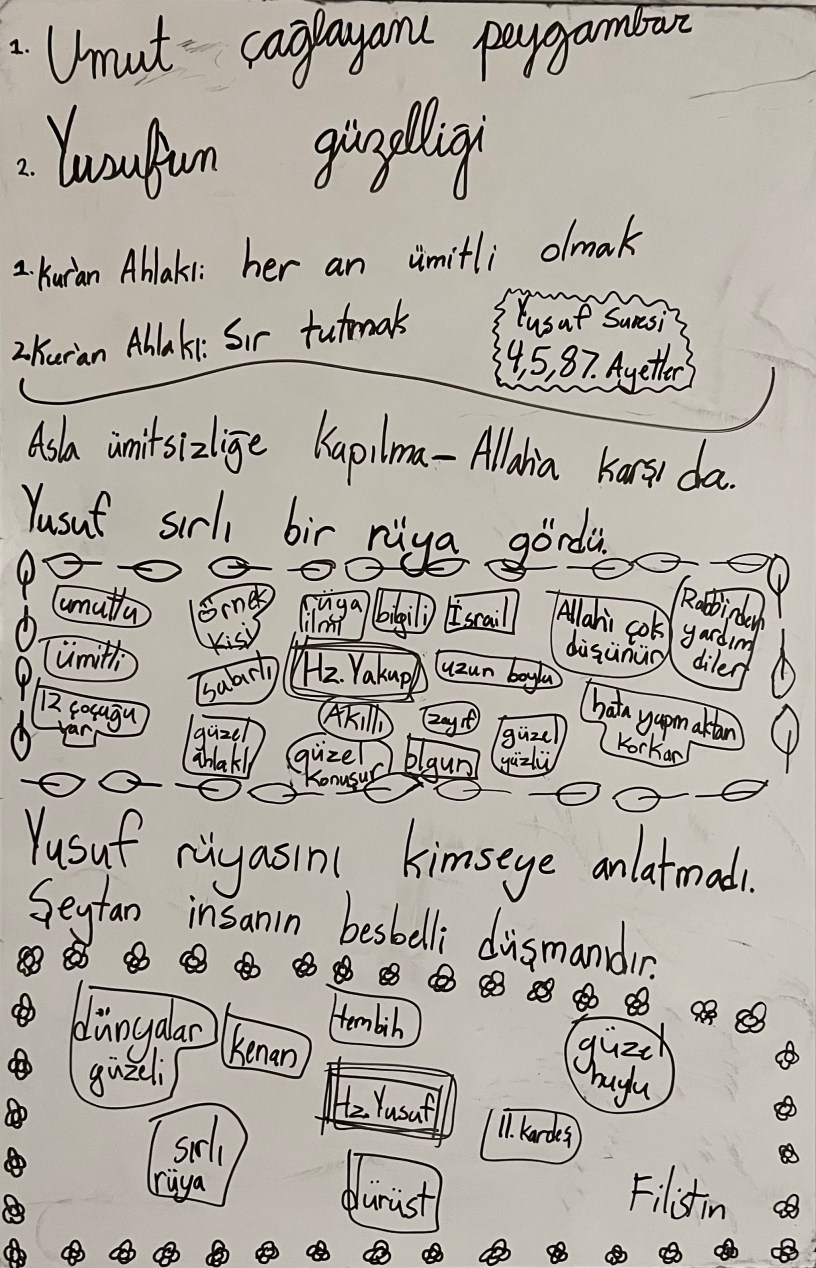 1. Umut çağlayanı peygambar
2. Yusuf'un güzelliği
1. Kur'an Ahlakı: her an ümitli olmak
2. Kur'an Ahlakı: Sır tutmak
Yusuf Suresi
4,5,87. Ayetler
Asla ümitsizliğe kapılma – Allah'a karşı da.
Yusuf sırlı bir rüya gördü.
umutlu
örnek
kişi
rüya
ilmi
bilgili
İsrail
Allah'ı çok
düşünür
Rabbinden
yardım
diler
ümitli
sabırlı
Hz. Yakup
uzun boylu
12 çoçuğu
var
güzel
ahlaklı
Akıllı
zayıf
güzel
konuşur
olgun
güzel
yüzlü
hata yapmaktan
korkar
Yusuf rüyasını kimseye anlatmadı.
Şeytan insanın besbelli düşmanıdır.
dünyalar
güzeli
kenan
tembih
güzel
huylu
Hz. Yusuf
11. kardeş
sırlı
rüya
dürüst
Filistin